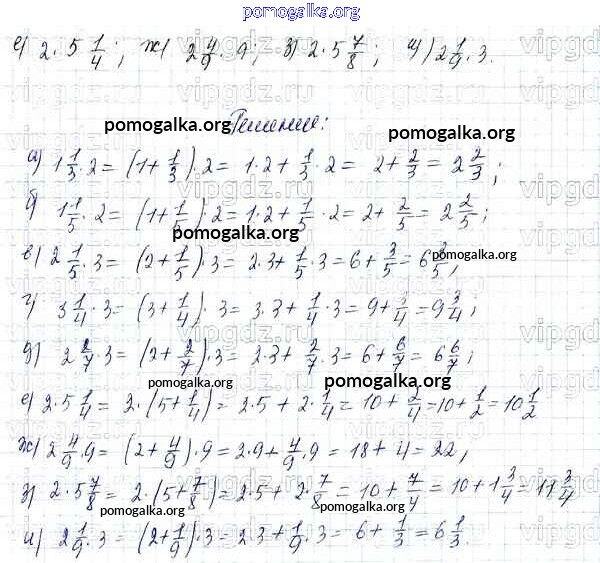 pomogalka.org
е) 2 · 5 1/4; ж) 2 4/9 · 9; з) 2 · 5 7/8; и) 2 1/9 · 3.
Решение:
pomogalka.org pomogalka.org
а) 1 1/3 · 2 = (1 + 1/3) · 2 = 1 · 2 + 1/3 · 2 = 2 + 2/3 = 2 2/3;
б) 1 1/5 · 2 = (1 + 1/5) · 2 = 1 · 2 + 1/5 · 2 = 2 + 2/5 = 2 2/5;
pomogalka.org
в) 2 1/5 · 3 = (2 + 1/5) · 3 = 2 · 3 + 1/5 · 3 = 6 + 3/5 = 6 3/5,
pomogalka.org
г) 3 1/4 · 3 = (3 + 1/4) · 3 = 3 · 3 + 1/4 · 3 = 9 + 3/4 = 9 3/4;
pomogalka.org
д) 2 2/7 · 3 = (2 + 2/7) · 3 = 2 · 3 + 2/7 · 3 = 6 + 6/7 = 6 6/7;
pomogalka.org pomogalka.org
е) 2 · 5 1/4 = 2 · (5 + 1/4) = 2 · 5 + 2 · 1/4 = 10 + 2/4 = 10 + 1/2 = 10 1/2
pomogalka.org
ж) 2 4/9 · 9 = (2 + 4/9) · 9 = 2 · 9 + 4/9 · 9 = 18 + 4 = 22,
з) 2 · 5 7/8 = 2 · (5 + 7/8) = 2 · 5 + 2 · 7/8 = 10 + 7/4 = 10 + 1 3/4 = 11 3/4
pomogalka.org pomogalka.org
и) 2 1/9 · 3 = (2 + 1/9) · 3 = 2 · 3 + 1/9 · 3 = 6 + 1/3 = 6 1/3.
vipgdz.ru